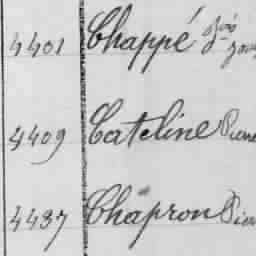 4401 Chappé
4409 Cateline Pierre
4437 Chapron Pierre